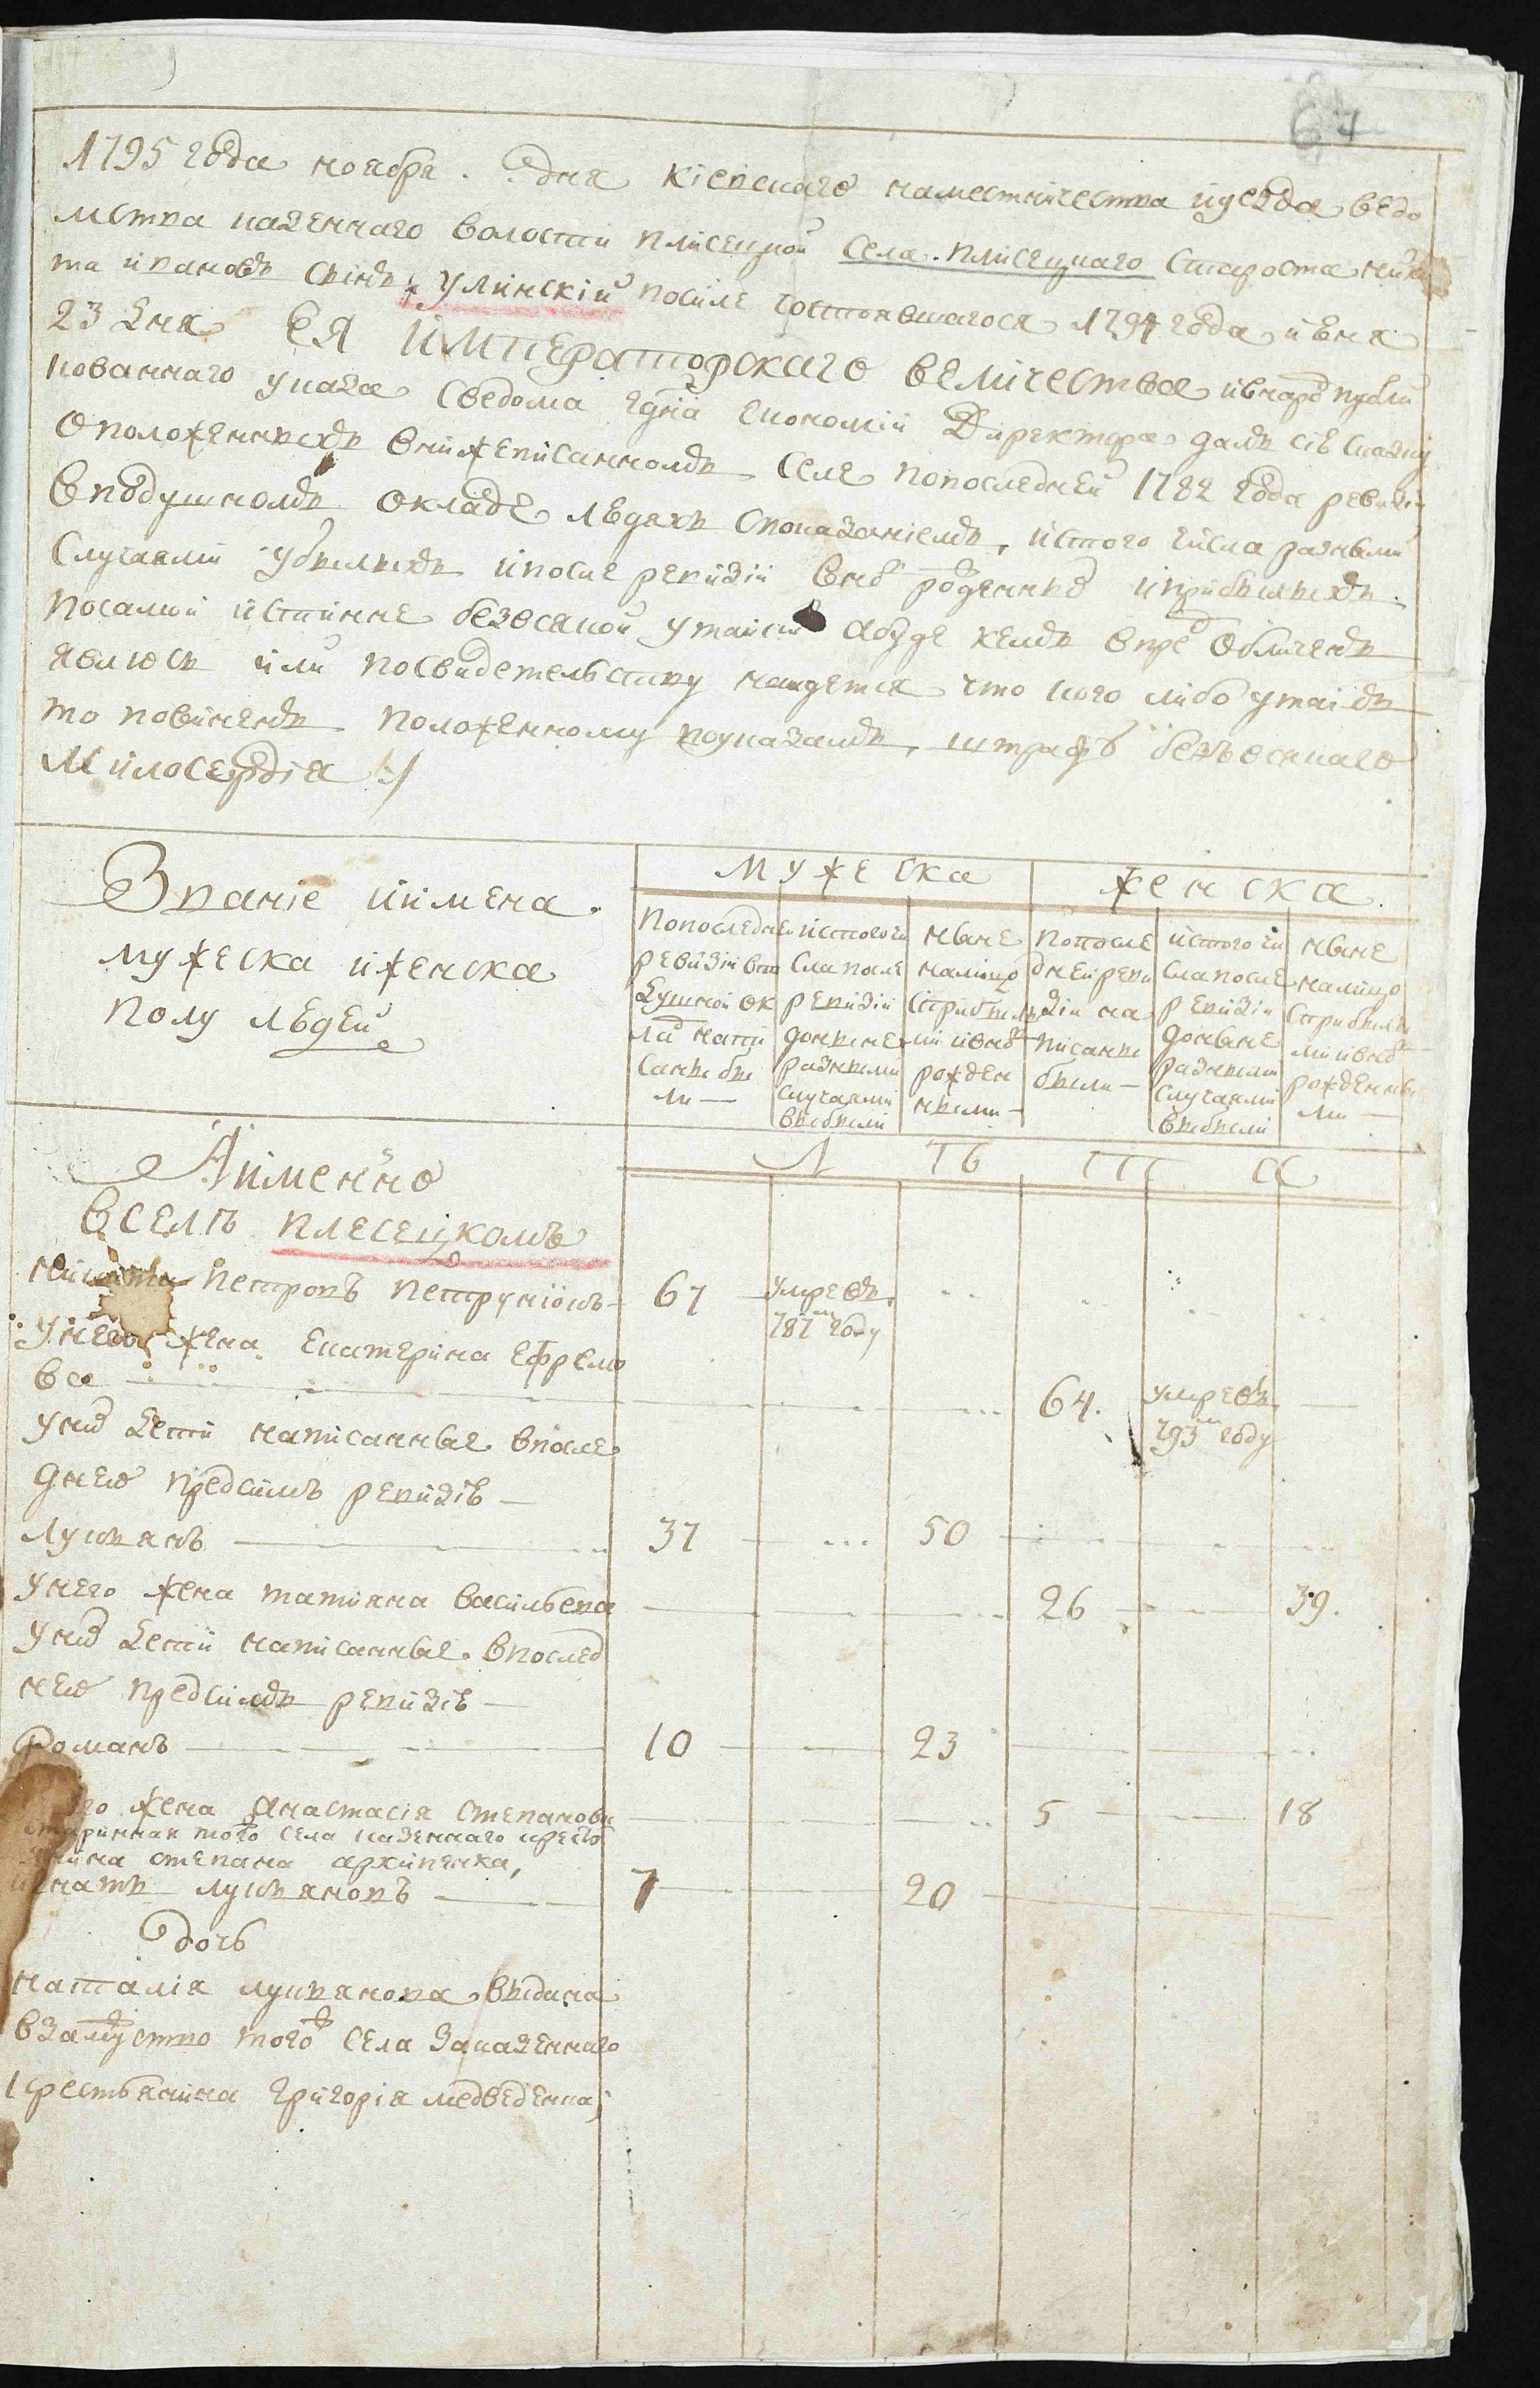 64
1795 года ноября . дня Кіевскаго наместничества иуезда ведо
мства казенного волости плисецкой села плисецкаго староста ники
та ивановъ синъ улинскій посиле состоявшагося 1794 года июня
23 дня ЕЯ ИМПЕРАТОРСКАГО величества ивнародъ публи
кованнаго указа сведома економіи Директора далъ сію сказку
оположенныхъ внижеписанномъ селе попоследней 1782 года ревизіи
вподушномъ окладе людяхъ споказаніемъ, истого числа разными
случаями убылыхъ ипосле ревизіи вновь рожденныхъ иприбылыхъ
посамой истинне безвсякой утайки абуде кемъ впредь обличенъ
явлюсь или посвидетельству найдется что кого либо утаилъ
то повиненъ положенному поуказамъ, штрафъ безъвсякаго
милосердія
Званіе иимена
мужеска иженска
полу людей
мужеска
женска
Попоследней
ревизіи впо
душной ок
лад напи
саны бы
ли
истогочи
сла после
ревизіи
доныне
разными
случаями
выбыли
ныне
налицо
сприбылы
ми ивновь
рожден
ными
попосле
дней реви
зіи на
писаны
были
истого чи
сла после
ревизіи
доныне
разными
случаями
выбыли
ныне
налицо
сприбылы
ми ивновь
рожденны
ми
Л ТЬ ТТ А
Аименно
вселъ плесецкомъ
никита Петровъ петрунiокъ 67 умребъ
787м году
Унего жена Екатерина Ефремо
ва 64. умребъ
793м году
Унихъ дети написанные впосле
днею предсимъ ревизію
Лукянъ 37 50
Унего жена татияна васильева 26 39.
Унихъ дети написанные впослед
нею предсимъ ревизію
Романъ 10 23
го жена Анастасія степанова 5 18
старинная того села казенного кресть
янина степана архипенка,
игнатъ лукяновъ 7 20
дочь
наталія лукянова выдана
взамужство того села заказенного
крестьянина Григорія медведенка;